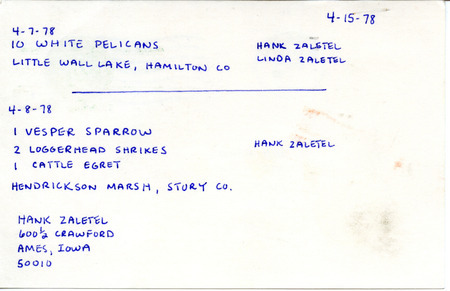 4-15-78
4-7-78
10 WHITE PELICANS HANK ZALETEL
LITTLE WALL LAKE, HAMILTON CO LINDA ZALETEL
4-8-78
1 VESPER SPARROW
2 LOGGERHEAD SHRIKES HANK ZALETEL
1 CATTLE EGRET
HENDRICKSON MARSH, STORY CO.
HANK ZALETEL
600½ CRAWFORD
AMES, IOWA
50010